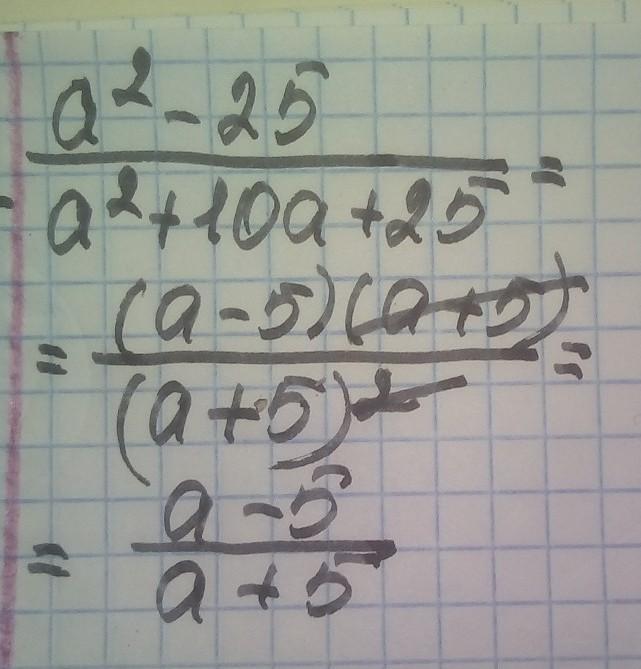 a² - 25
a² + 10a + 25 =
= (a - 5)(a + 5)
(a + 5)² =
= a - 5
a + 5